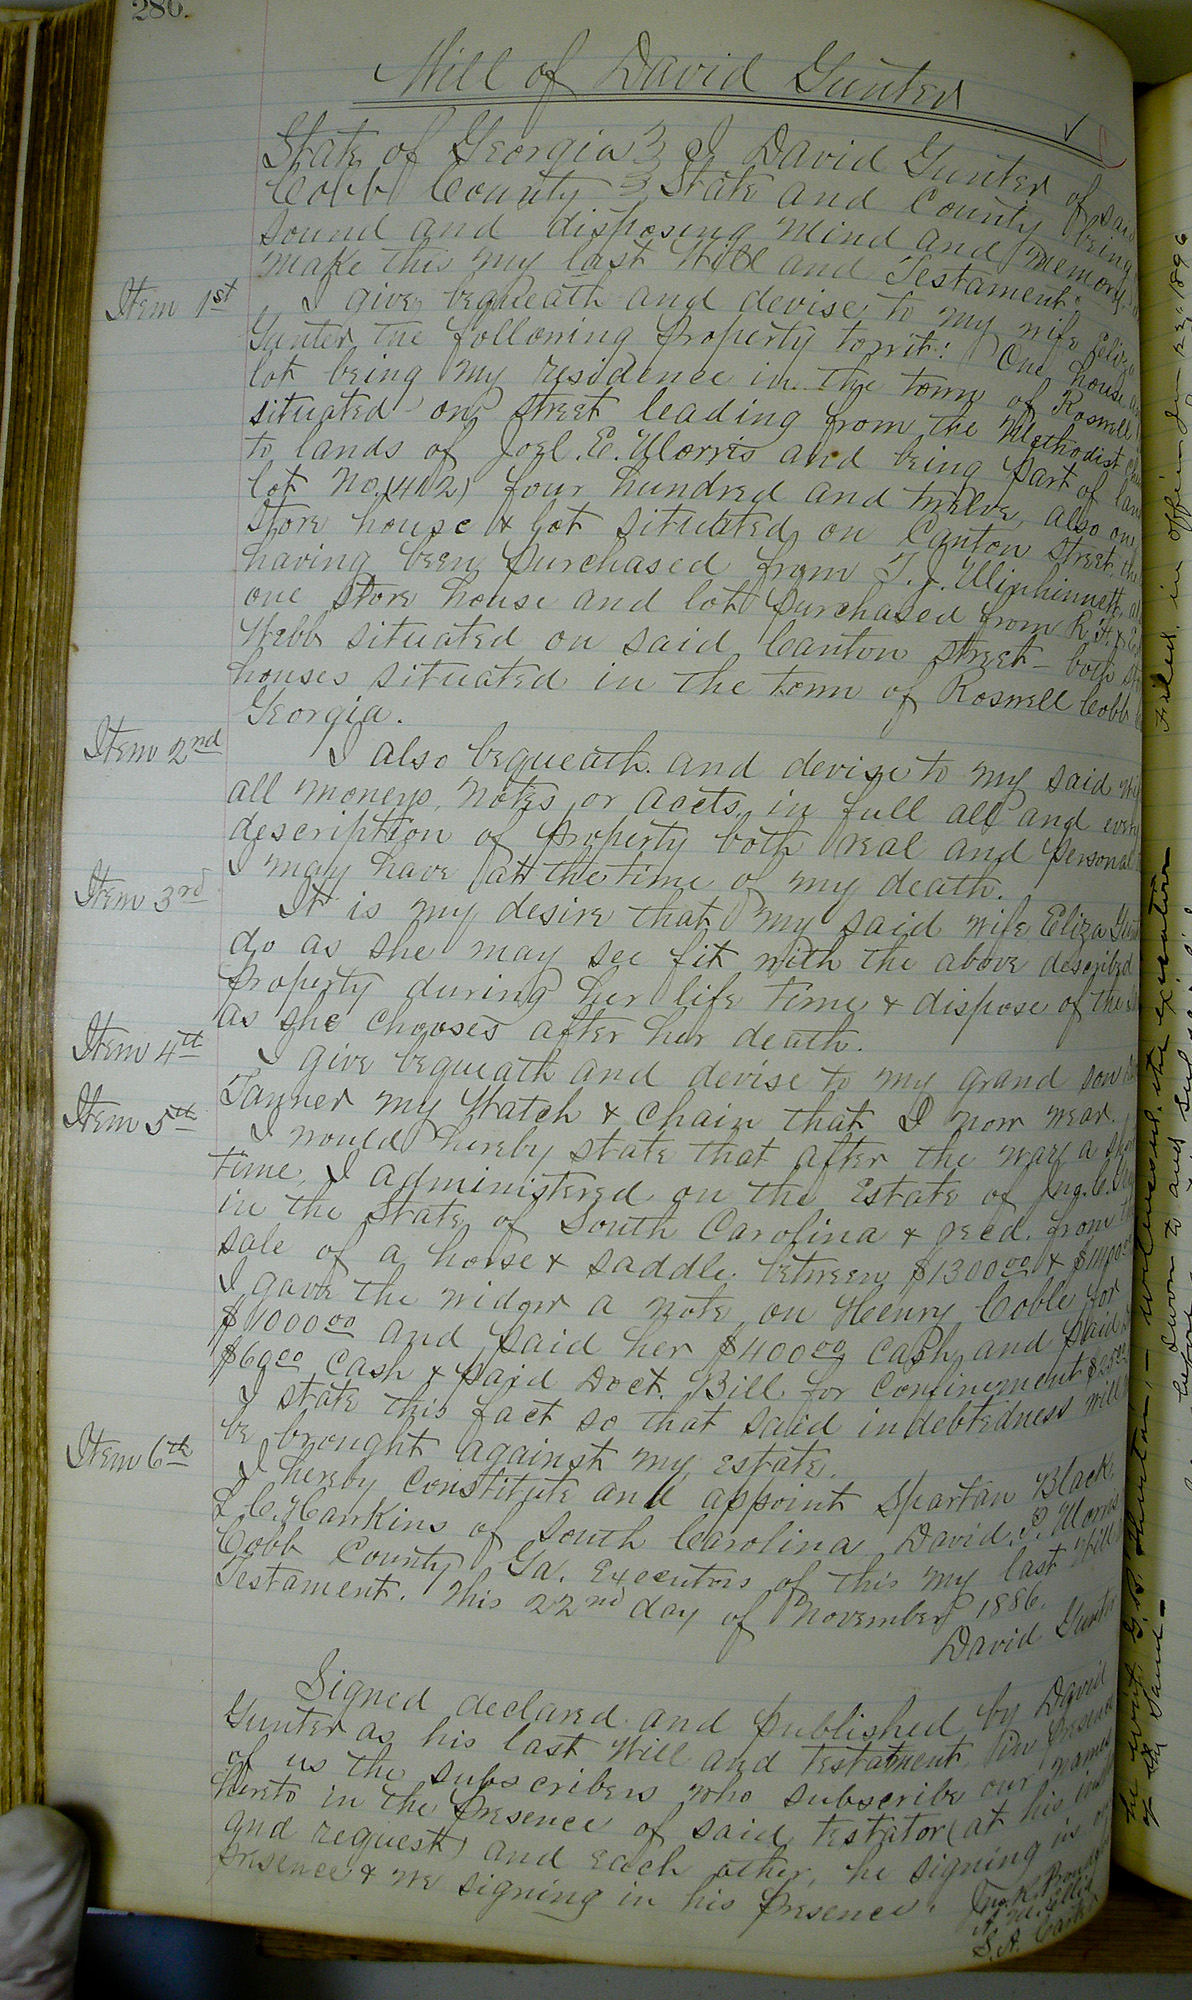 286.
Will of David Gunter
State of Georgia } I David Gunter of said
Cobb County } State and County being
sound and disposing mind and memory
make this my last Will and Testament.
Item 1st I give, bequeath and devise to my wife Eliza
Gunter the following property towit: One house
lot being my residence in the town of Roswell
situated on street leading from the Methodist
to lands of Joel. E. Morris and being part of
lot No. (412) four hundred and twelve, also one
store house & lot situated on Canton Street,
having been purchased from T. J. Minhinnett,
one store house and lot purchased from R. H. &
Webb situated on said Canton street - both
houses situated in the town of Roswell Cobb
Georgia.
Item 2nd I also bequeath and devise to my said
all moneys, notes, or accts, in full all and every
description of property both real and personal
I may have at the time of my death.
Item 3rd It is my desire that my said wife Eliza
do as she may see fit with the above described
property during her life time & dispose of the
as she chooses after her death.
Item 4th I give bequeath and devise to my grand son
Tanner my Watch & chain that I now wear.
Item 5th I would hereby state that after the war a
time, I administered on the Estate of Jno. C.
in the State of South Carolina & recd. from
sale of a horse & saddle between $1300.00 &
I gave the widow a note on Henry Coble for
$1000.00 and paid her $400.00 cash, and paid
$60.00 cash & paid Doct. Bill for confinement
I state this fact so that said indebtedness will
be brought against my estate.
Item 6th I hereby constitute and appoint Spartan Black
L. C. Hawkins of South Carolina, David P. Morris
Cobb County, Ga. Executors of this my last Will
Testament. This 22nd day of November 1886.
David Gunter
Signed declared and published by David
Gunter as his last Will and testatment, in presence
of us the subscribers who subscribe our names
hereto in the presence of said testator (at his
and request) and each other, he signing in
presence & we signing in his presence.
S. A.
Filed in office 1896
the executor
Sworn to and
of the same -